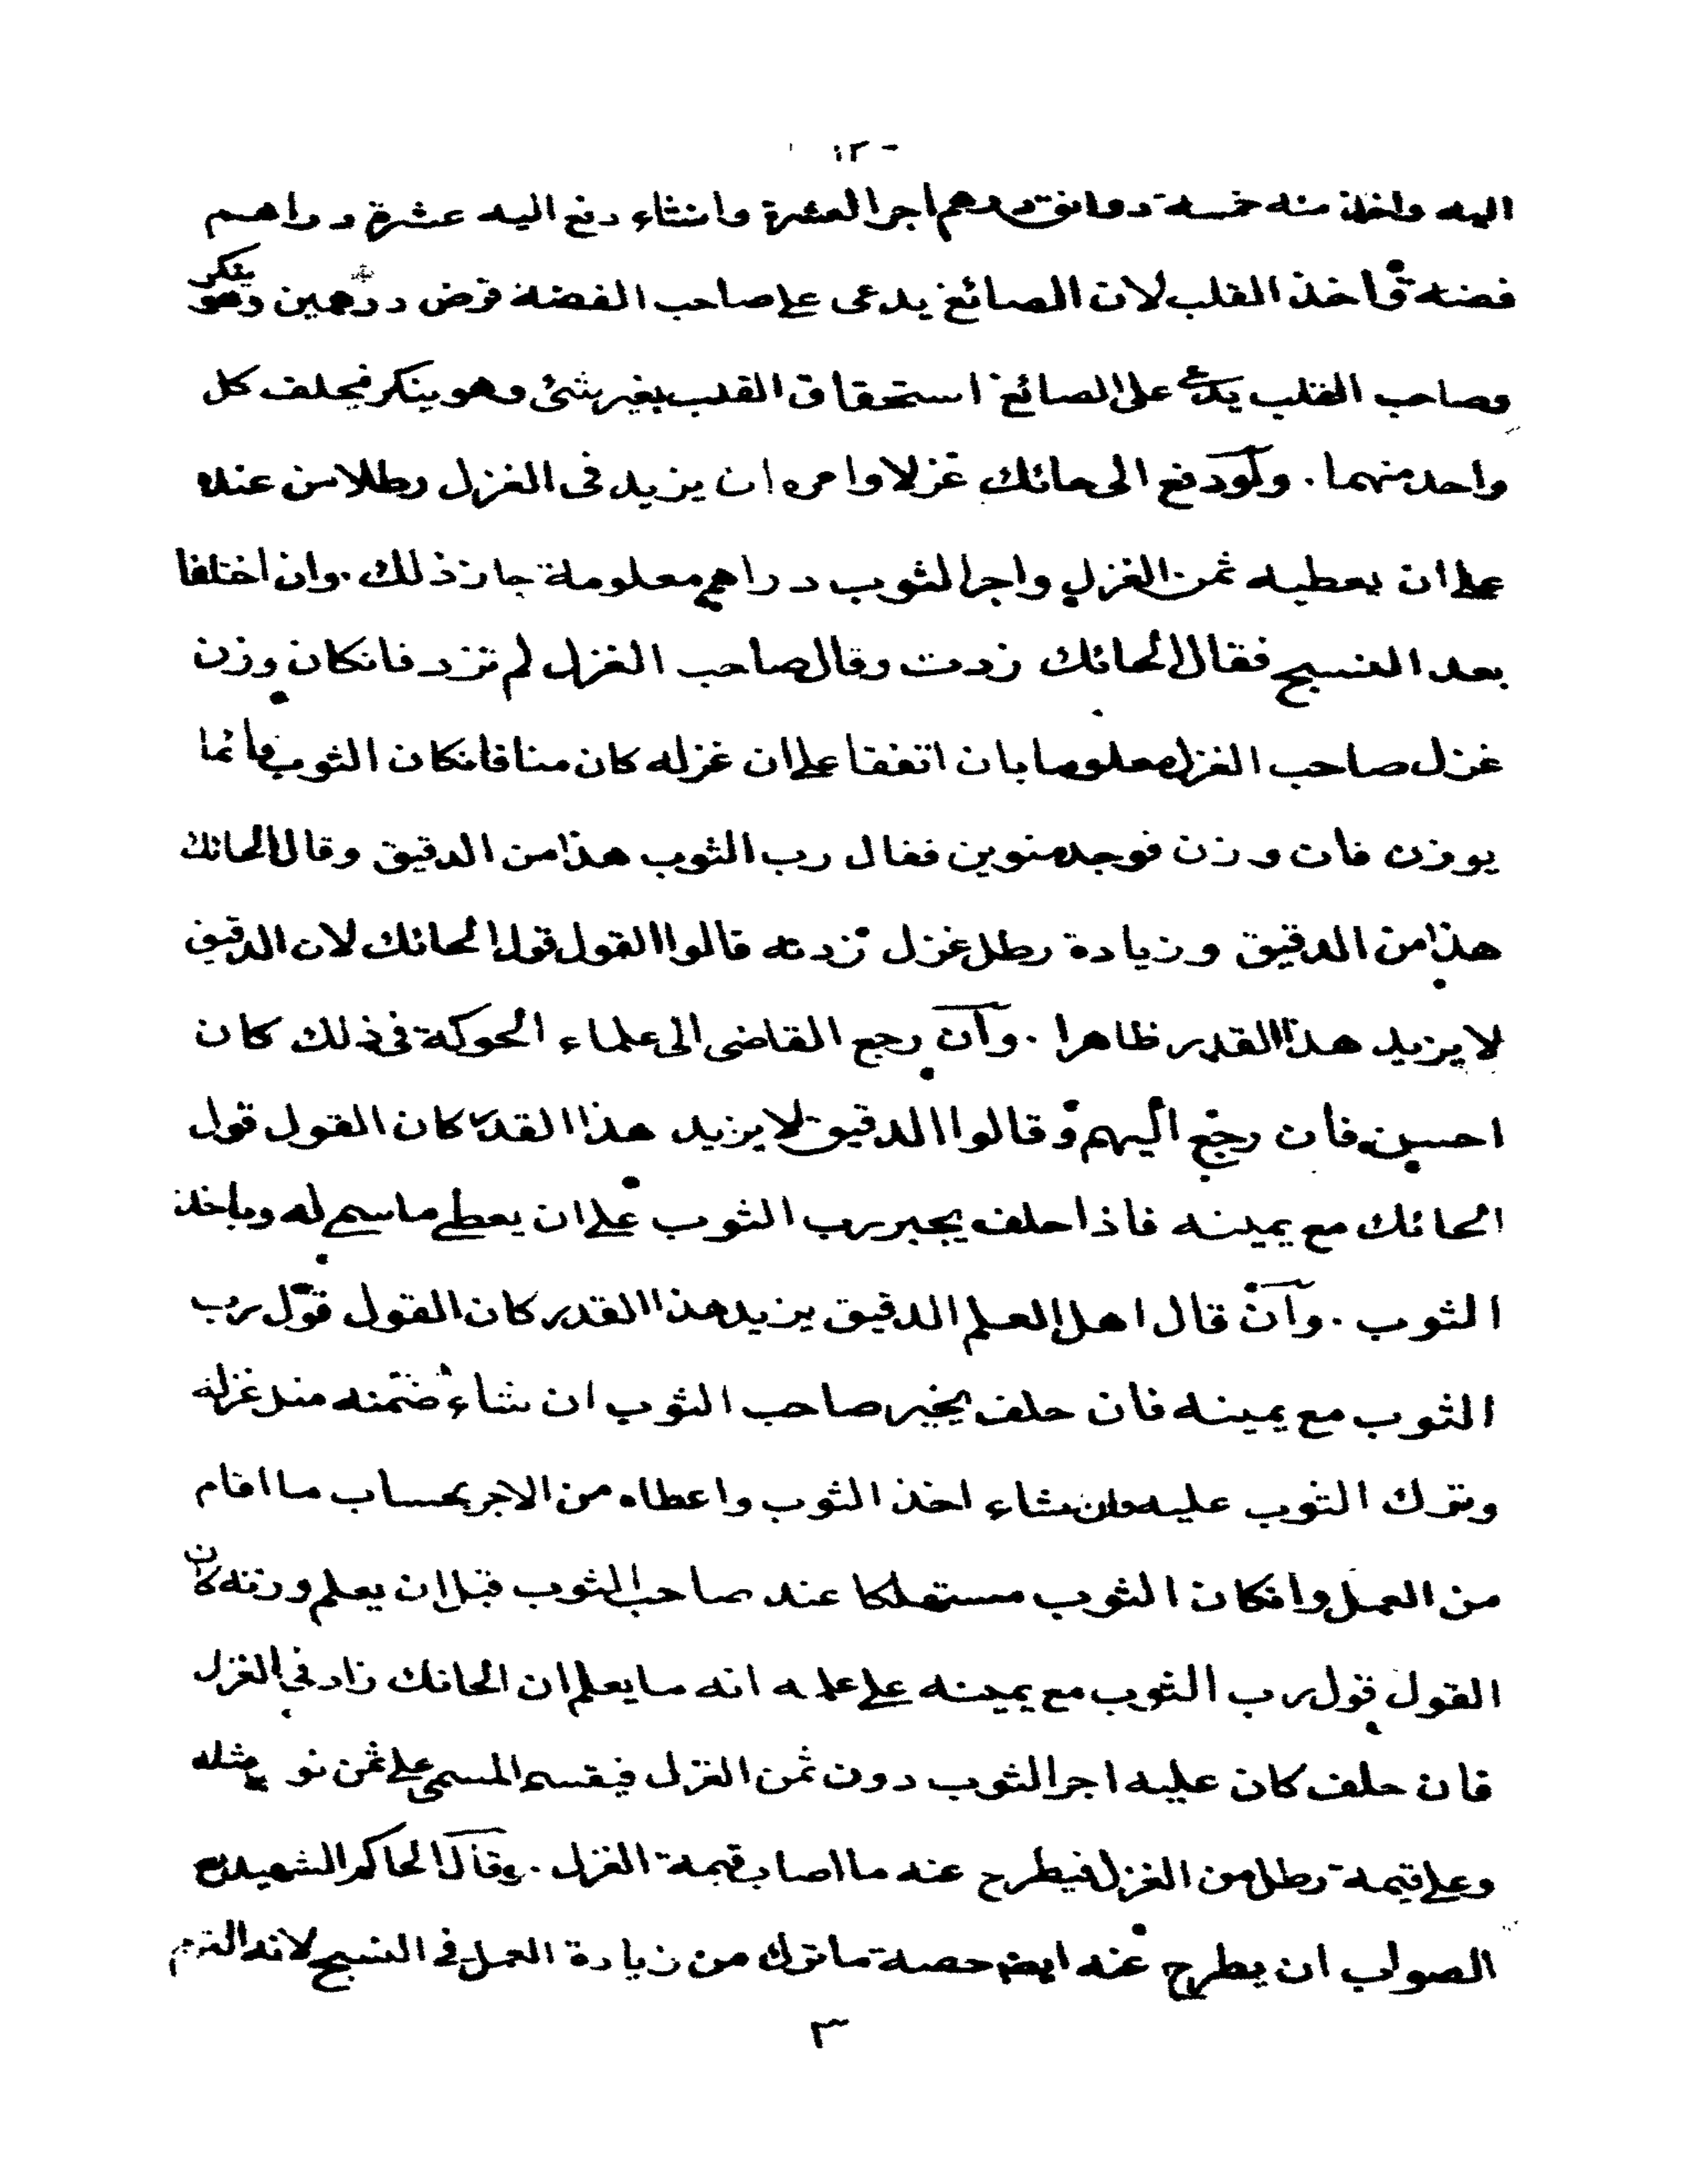 ١٢ -
اليه واخذ منه خمسة دوانق درهم اجر العشرة وانشاء دفع اليه عشرة دراهم
فضة واخذ القلب لان الصائغ يدعى على صاحب الفضة قرض درهمين وهو ينكر
وصاحب القلب يدعى على الصائغ استحقاق القلب بغير شئ وهو ينكر فيحلف كل
واحد منهما . ولو دفع الى حائك غزلا وامره ان يزيد فى الغزل رطلا من عنده
على ان يعطيه ثمن الغزل واجر الثوب دراهم معلومة جاز ذلك . وان اختلفا
بعد النسج فقال الحائك زدت وقال صاحب الغزل لم تزد فانكان وزن
غزل صاحب الغزل معلوما بان اتفقا على ان غزله كان منا فانكان الثوب قائما
يوزن فان وزن فوجد منوين فقال رب الثوب هذا من الدقيق وقال الحائك
هذا من الدقيق وزيادة رطل غزل زدته قالوا القول قول الحائك لان الدقيق
لا يزيد هذا القدر ظاهرا . وان رجع القاضى الى علماء الحوكة فى ذلك كان
احسن فان رجع اليهم وقالوا الدقيق لا يزيد هذا القدر كان القول قول
الحائك مع يمينه فاذا حلف يجبر رب الثوب على ان يعطى ما سمى له وياخذ
الثوب . وان قال اهل العلم الدقيق يزيد هذا القدر كان القول قول رب
الثوب مع يمينه فان حلف يخير صاحب الثوب ان شاء ضمنه مثل غزله
وترك الثوب عليه وان شاء اخذ الثوب واعطاه من الاجر بحساب ما اقام
من العمل وانكان الثوب مستهلكا عند صاحب الثوب قبل ان يعلم وزنه كان
القول قول رب الثوب مع يمينه على علمه انه ما يعلم ان الحائك زاد فى الغزل
فان حلف كان عليه اجر الثوب دون ثمن الغزل فيقسم المسمى على ثمن مثله
وعلى قيمة رطل من الغزل فيطرح عنه ما اصاب قيمة الغزل . وقال الحاكم الشهيد رح
الصواب ان يطرح عنه ايض حصة ما ترك من زيادة العمل فى النسج لانه التزم
٣